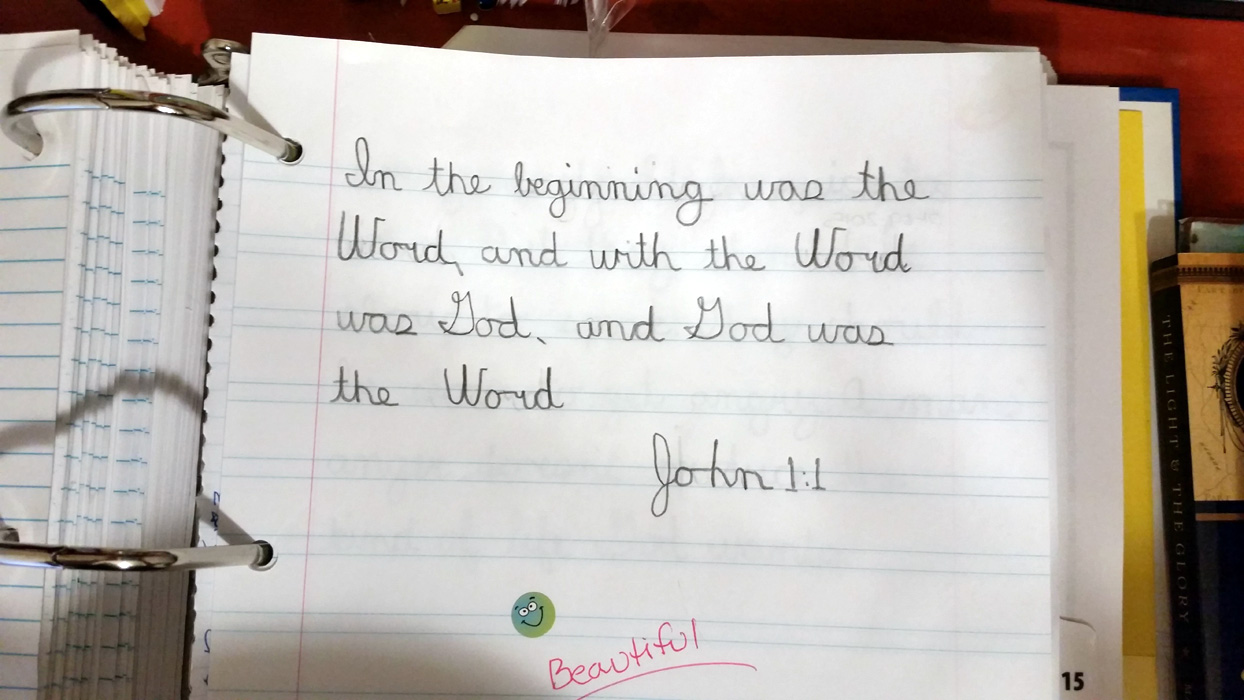 In the beginning was the
Word, and with the Word
was God, and God was
the Word
John 1:1
Beautiful
15
THE LIGHT & THE GLORY